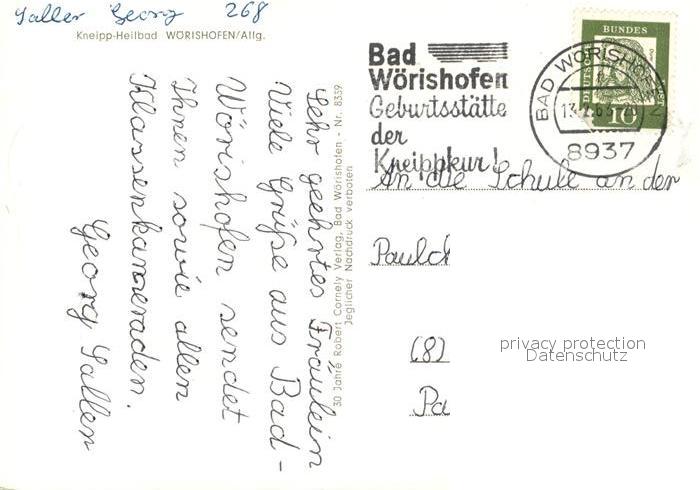 Saller Georg 268
Kneipp-Heilbad WÖRISHOFEN/Allg.
Sehr geehrtes Fräulein
Viele Grüße aus Bad-
Wörishofen sendet
Ihnen sowie allen
Klassenkameraden.
Georg Saller
30 Jahre Robert Cornely Verlag, Bad Wörishofen - Nr. 8339
Jeglicher Nachdruck verboten
Bad
Wörishofen
Geburtsstätte
der
Kneippkur!
BAD WÖRISHOFEN
8937
BUNDES
10
An die Schule an der
(8)
privacy protection
Datenschutz